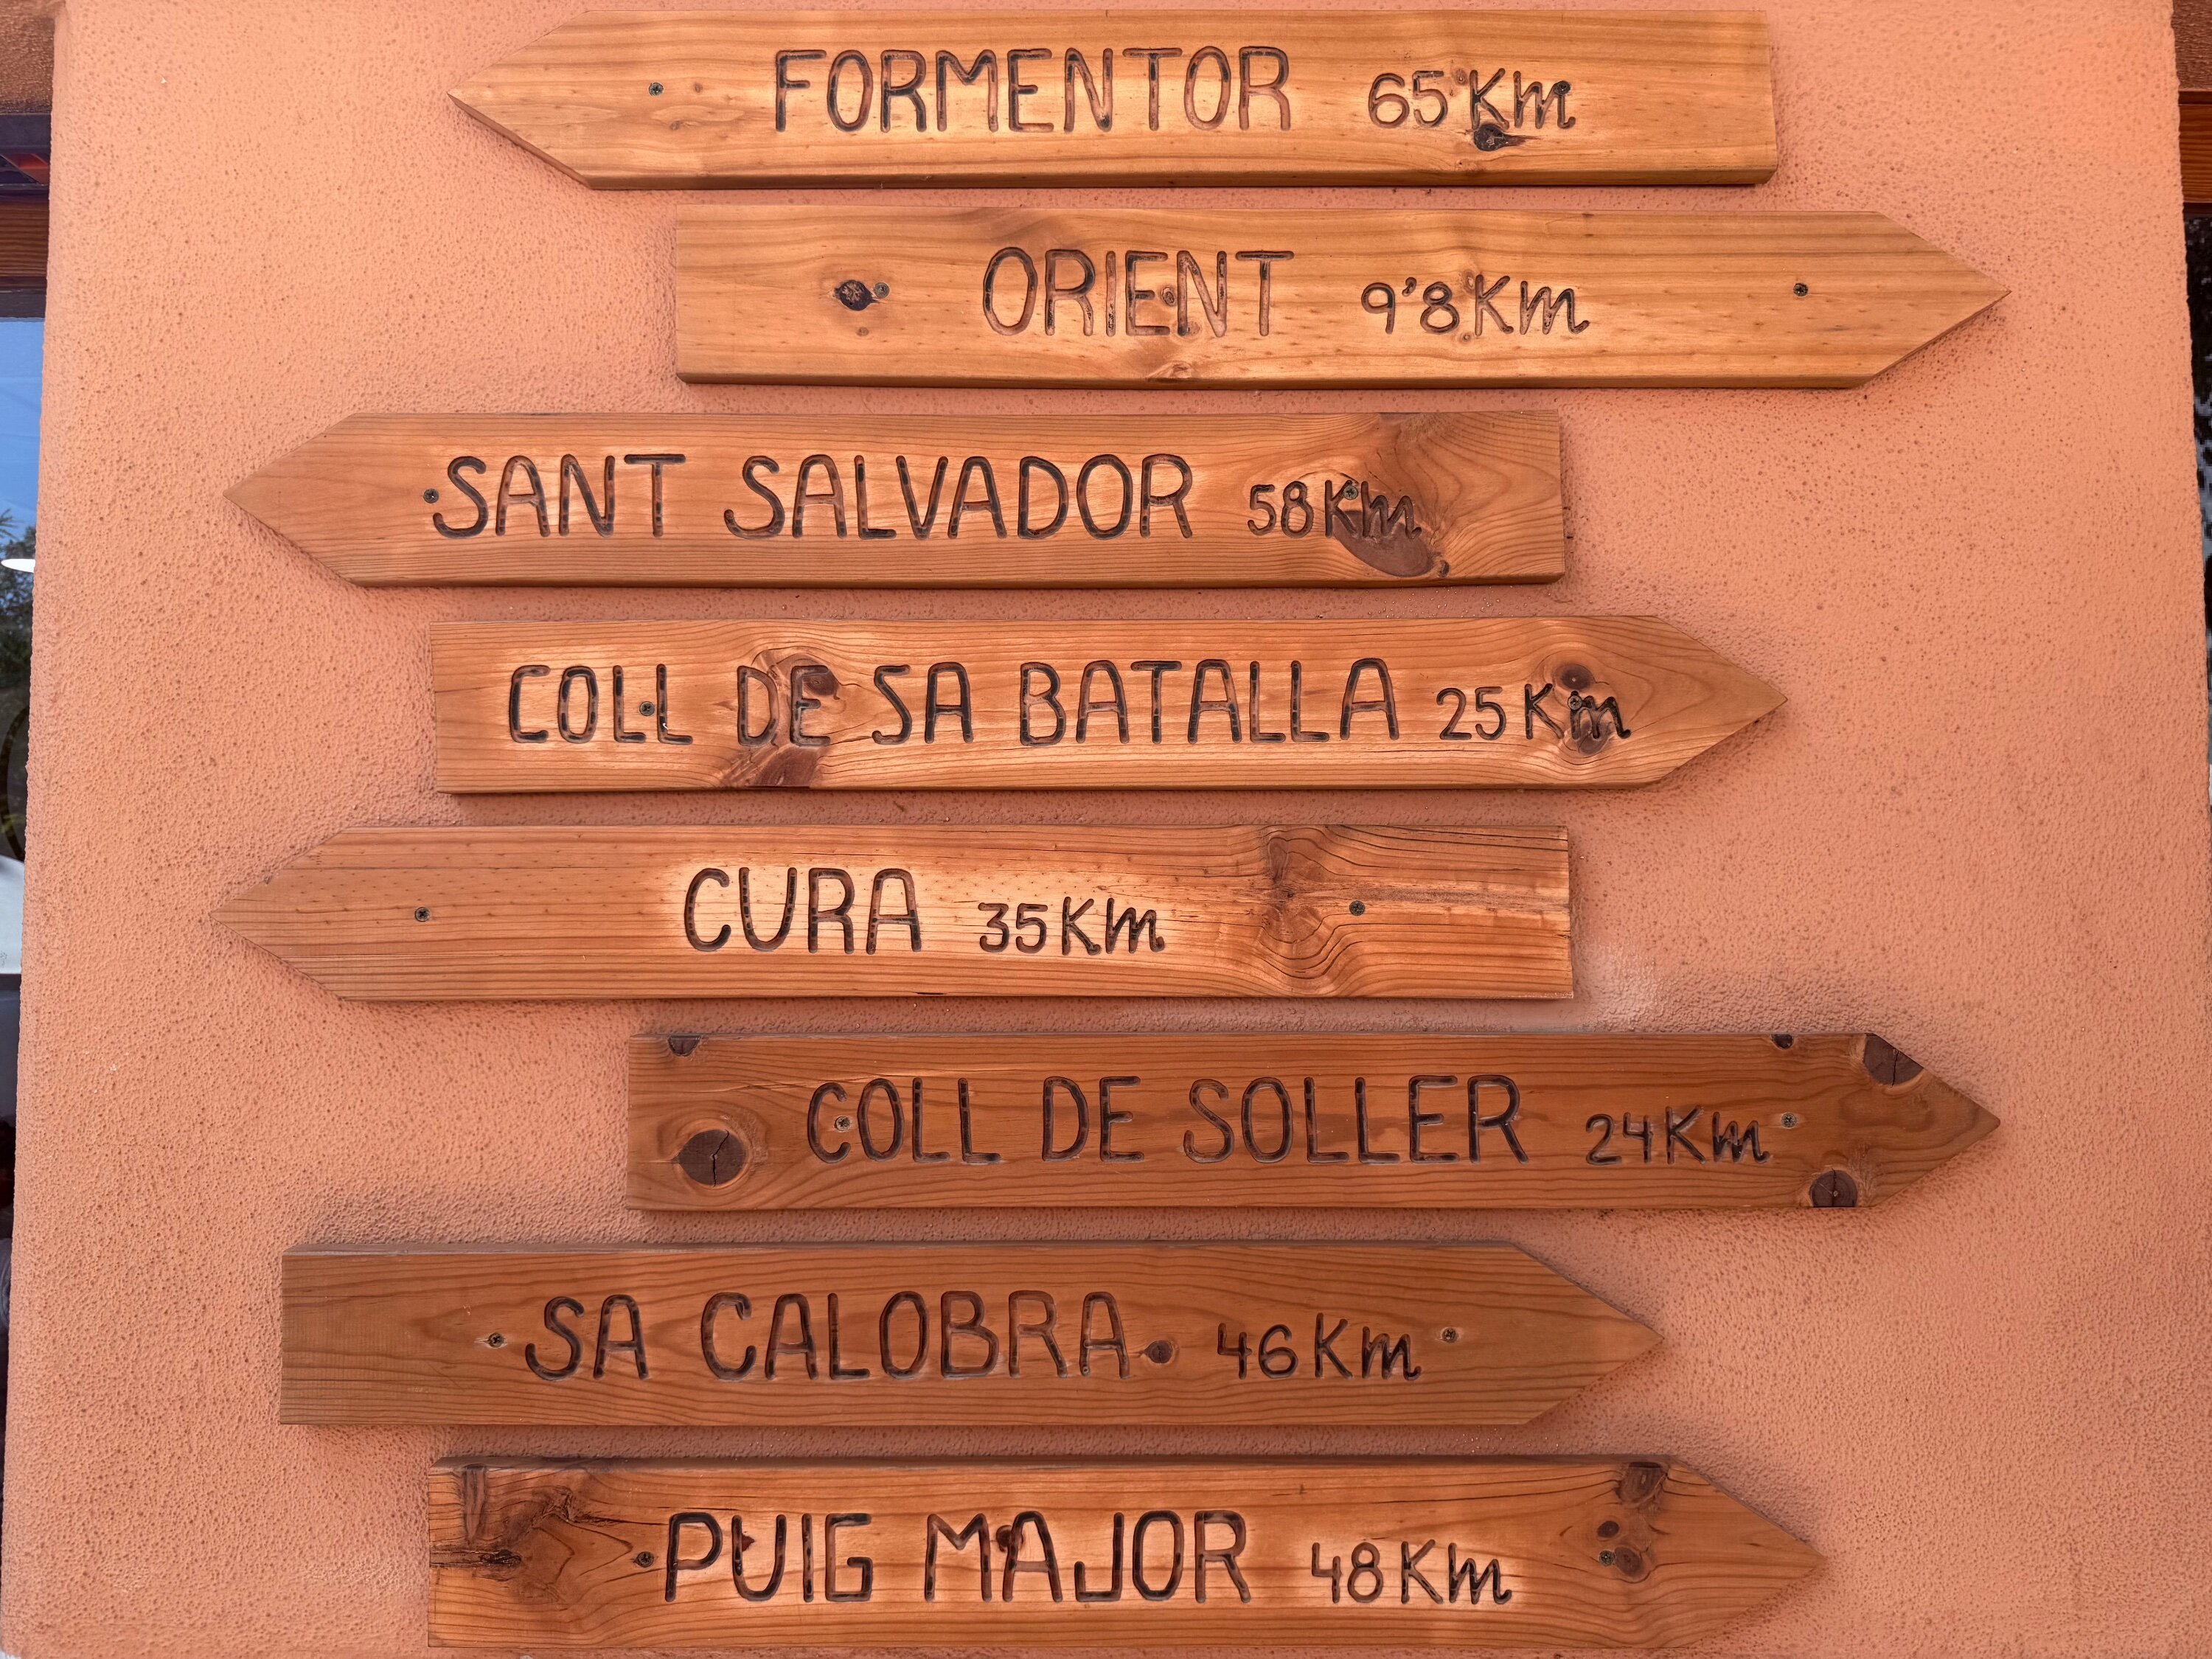 FORMENTOR 65Km
ORIENT 9'8Km
SANT SALVADOR 58Km
COLL DE SA BATALLA 25Km
CURA 35Km
COLL DE SOLLER 24Km
SA CALOBRA 46Km
PUIG MAJOR 48Km